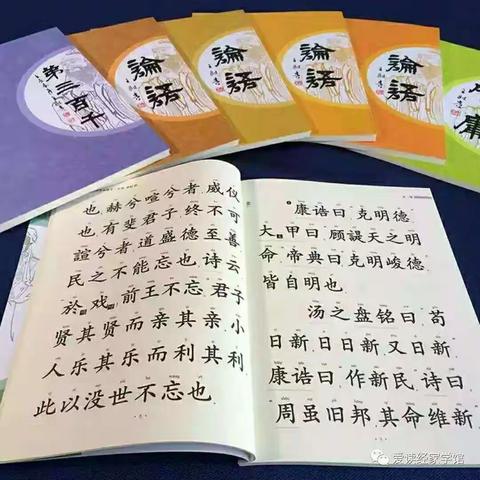 弟三百千
論語
論語
論語
論語
庸
也，赫兮喧兮者，威仪
也。有斐君子，终不可
諠兮者，道盛德至善
民之不能忘也。诗云
於戏，前王不忘。君子
贤其贤而亲其亲，小
人乐其乐而利其利
此以没世不忘也。
康诰曰，克明德
大甲曰，顾諟天之明
命。帝典曰，克明峻德
皆自明也。
汤之盘铭曰，苟
日新，日日新，又日新
康诰曰，作新民。诗曰
周虽旧邦，其命维新
爱读经家学馆